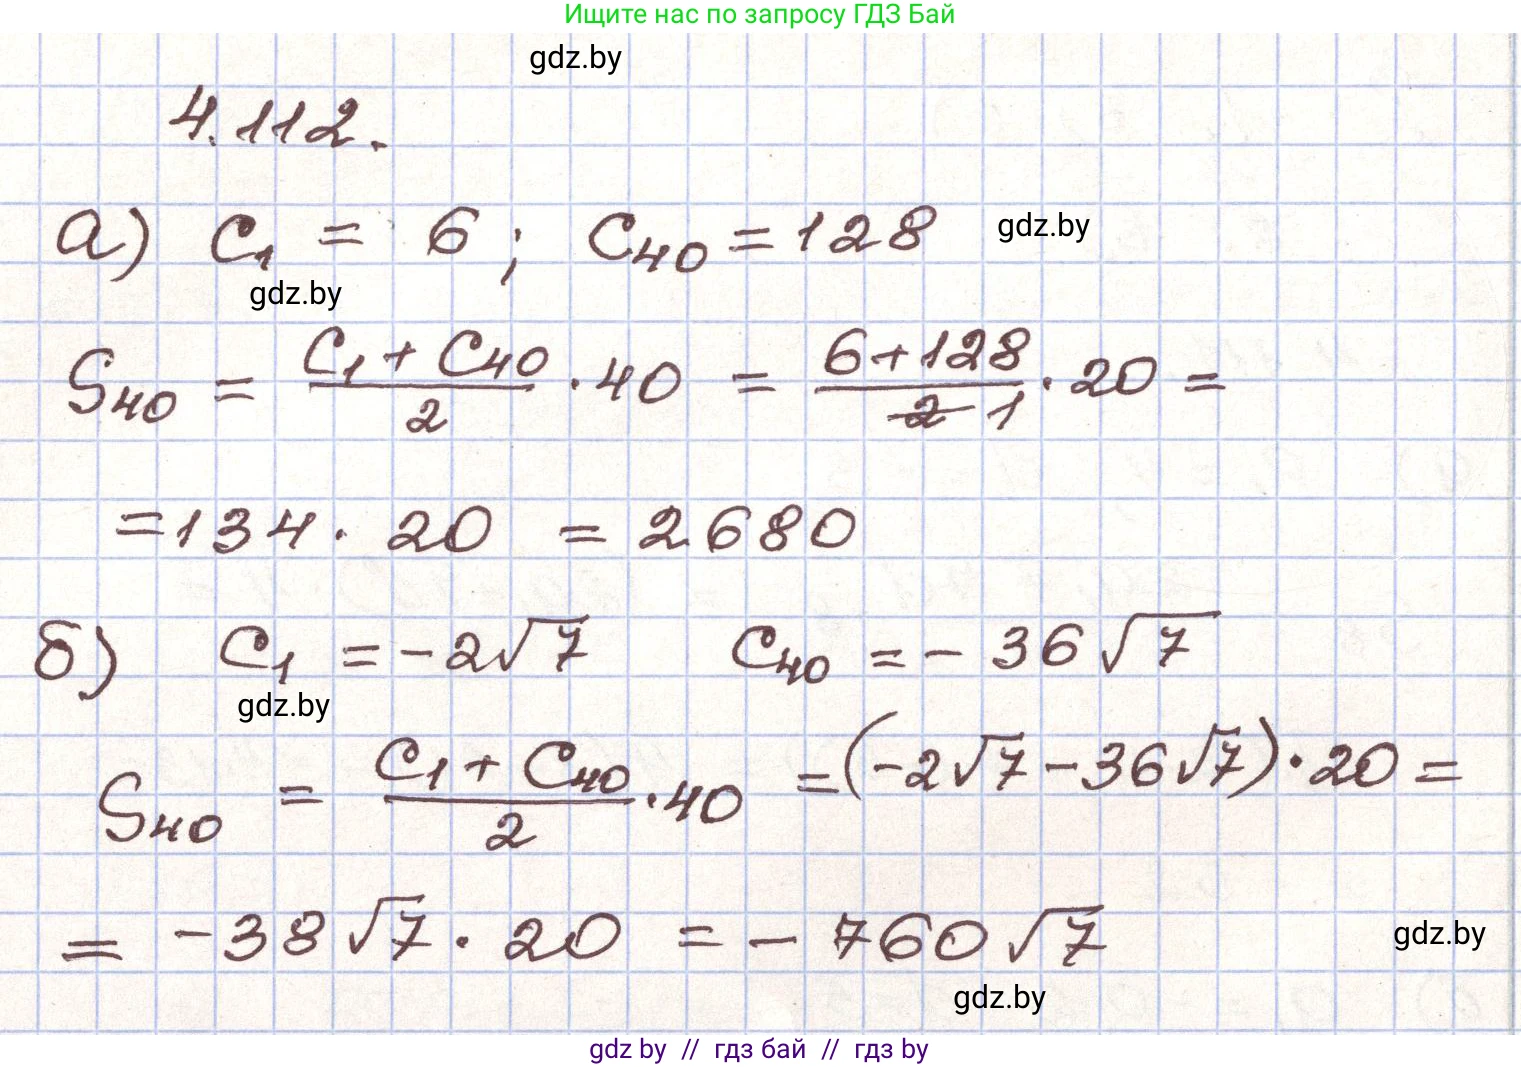 Ищите нас по запросу ГДЗ Бай
gdz.by
4.112.
а) C₁ = 6 ; C₄₀ = 128
gdz.by
gdz.by
S₄₀ = (C₁ + C₄₀)/2 · 40 = (6+128)/(2̶ 1) · 20 =
= 134 · 20 = 2680
б) C₁ = -2√7 C₄₀ = - 36√7
gdz.by
S₄₀ = (C₁ + C₄₀)/2 · 40 = (-2√7 - 36√7) · 20 =
= -38√7 · 20 = - 760√7
gdz.by
gdz.by
gdz by // гдз бай // гдз by